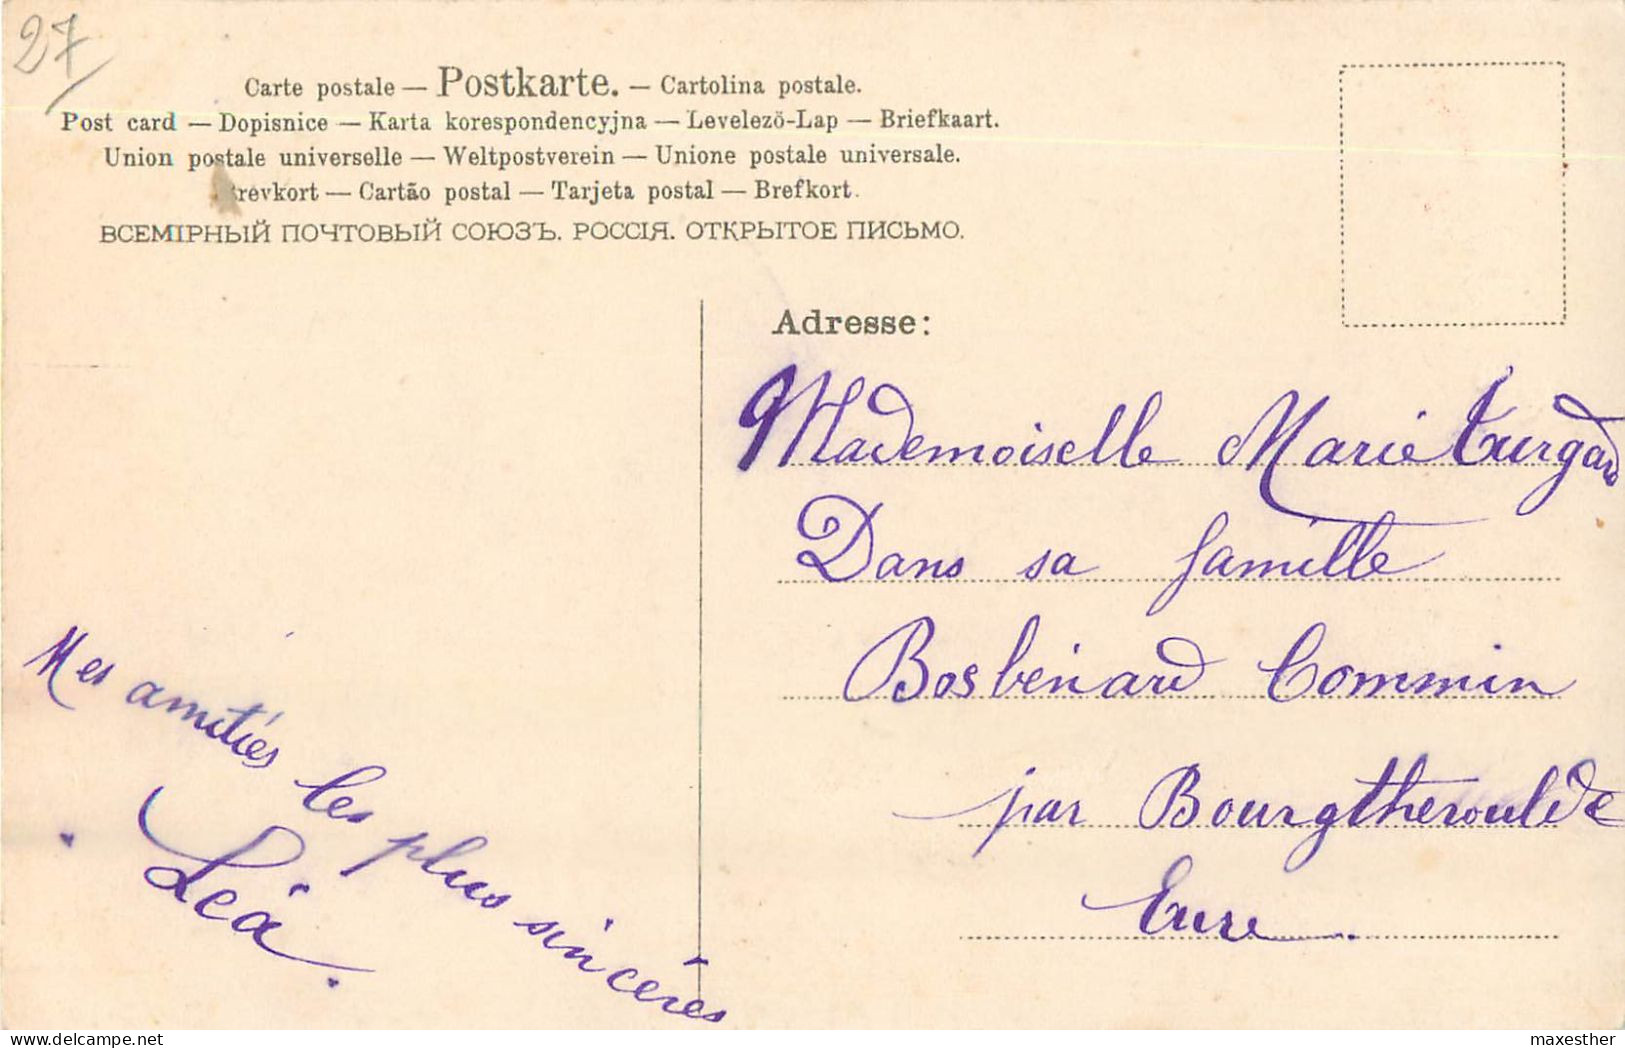 27
Carte postale — Postkarte. — Cartolina postale.
Post card — Dopisnice — Karta korespondencyjna — Levelező-Lap — Briefkaart.
Union postale universelle — Weltpostverein — Unione postale universale.
Brevkort — Cartão postal — Tarjeta postal — Brefkort.
ВСЕМІРНЫЙ ПОЧТОВЫЙ СОЮЗЪ. РОССІЯ. ОТКРЫТОЕ ПИСЬМО.
Adresse:
Mademoiselle Marie Turgard
Dans sa famille
Bosbénard Commin
par Bourgtheroulde
Eure.
Mes amitiés les plus sincères
Léa.
delcampe.net
maxesther